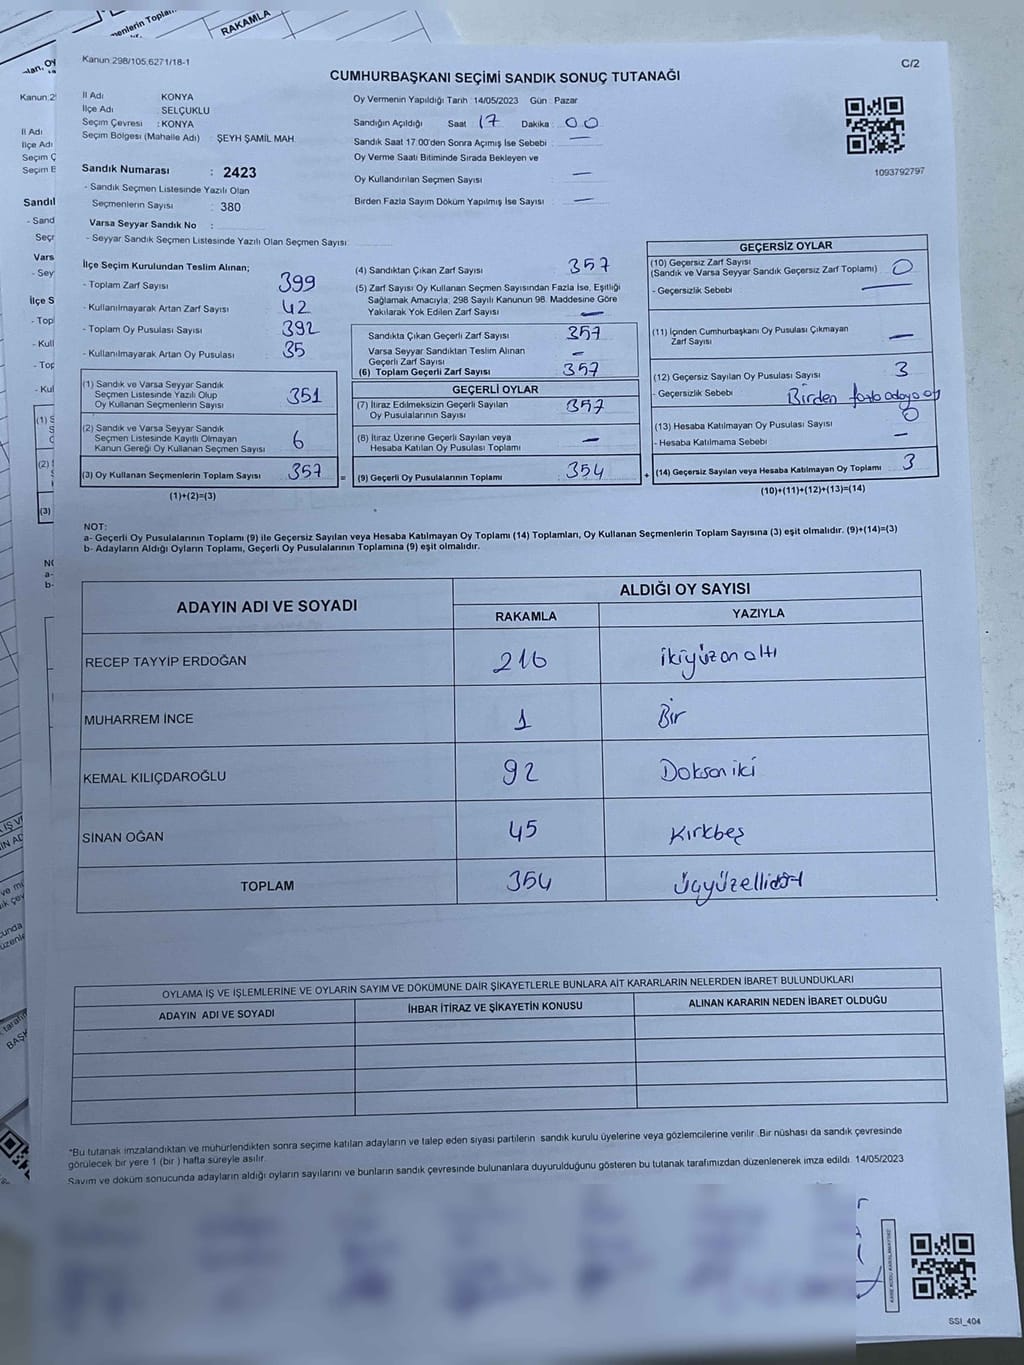 Kanun 298/105,6271/18-1
C/2
CUMHURBAŞKANI SEÇİMİ SANDIK SONUÇ TUTANAĞI
İl Adı KONYA
İlçe Adı SELÇUKLU
Seçim Çevresi : KONYA
Seçim Bölgesi (Mahalle Adı) : ŞEYH ŞAMİL MAH.
Oy Vermenin Yapıldığı Tarih :14/05/2023 Gün : Pazar
Sandığın Açıldığı Saat 17 Dakika : 00
Sandık Saat 17:00'den Sonra Açımış İse Sebebi : —
Oy Verme Saati Bitiminde Sırada Bekleyen ve
Oy Kullandırılan Seçmen Sayısı : —
Birden Fazla Sayım Döküm Yapılmış İse Sayısı : —
1093792797
Sandık Numarası : 2423
- Sandık Seçmen Listesinde Yazılı Olan
Seçmenlerin Sayısı : 380
Varsa Seyyar Sandık No :
- Seyyar Sandık Seçmen Listesinde Yazılı Olan Seçmen Sayısı:
İlçe Seçim Kurulundan Teslim Alınan;
- Toplam Zarf Sayısı : 399
- Kullanılmayarak Artan Zarf Sayısı : 42
- Toplam Oy Pusulası Sayısı : 392
- Kullanılmayarak Artan Oy Pusulası : 35
(1) Sandık ve Varsa Seyyar Sandık
Seçmen Listesinde Yazılı Olup
Oy Kullanan Seçmenlerin Sayısı : 351
(2) Sandık ve Varsa Seyyar Sandık
Seçmen Listesinde Kayıtlı Olmayan
Kanun Gereği Oy Kullanan Seçmen Sayısı : 6
(3) Oy Kullanan Seçmenlerin Toplam Sayısı : 357
(1)+(2)=(3)
(4) Sandıktan Çıkan Zarf Sayısı : 357
(5) Zarf Sayısı Oy Kullanan Seçmen Sayısından Fazla İse, Eşitliği
Sağlamak Amacıyla, 298 Sayılı Kanunun 98. Maddesine Göre
Yakılarak Yok Edilen Zarf Sayısı : —
Sandıkta Çıkan Geçerli Zarf Sayısı : 357
Varsa Seyyar Sandıktan Teslim Alınan
Geçerli Zarf Sayısı : —
(6) Toplam Geçerli Zarf Sayısı : 357
GEÇERLİ OYLAR
(7) İtiraz Edilmeksizin Geçerli Sayılan
Oy Pusulalarının Sayısı : 357
(8) İtiraz Üzerine Geçerli Sayılan veya
Hesaba Katılan Oy Pusulası Toplamı : —
= (9) Geçerli Oy Pusulalarının Toplamı : 354
GEÇERSİZ OYLAR
(10) Geçersiz Zarf Sayısı
(Sandık ve Varsa Seyyar Sandık Geçersiz Zarf Toplamı) : 0
- Geçersizlik Sebebi : —
(11) İçinden Cumhurbaşkanı Oy Pusulası Çıkmayan
Zarf Sayısı : —
(12) Geçersiz Sayılan Oy Pusulası Sayısı : 3
- Geçersizlik Sebebi : Birden fazla adaya oy
(13) Hesaba Katılmayan Oy Pusulası Sayısı : 0
- Hesaba Katılmama Sebebi : —
+ (14) Geçersiz Sayılan veya Hesaba Katılmayan Oy Toplamı : 3
(10)+(11)+(12)+(13)=(14)
NOT:
a- Geçerli Oy Pusulalarının Toplamı (9) ile Geçersiz Sayılan veya Hesaba Katılmayan Oy Toplamı (14) Toplamları, Oy Kullanan Seçmenlerin Toplam Sayısına (3) eşit olmalıdır. (9)+(14)=(3)
b- Adayların Aldığı Oyların Toplamı, Geçerli Oy Pusulalarının Toplamına (9) eşit olmalıdır.
ADAYIN ADI VE SOYADI ALDIĞI OY SAYISI
RAKAMLA YAZIYLA
RECEP TAYYİP ERDOĞAN 216 ikiyüzonaltı
MUHARREM İNCE 1 Bir
KEMAL KILIÇDAROĞLU 92 Doksaniki
SİNAN OĞAN 45 Kırkbeş
TOPLAM 354 üçyüzellidört
OYLAMA İŞ VE İŞLEMLERİNE VE OYLARIN SAYIM VE DÖKÜMÜNE DAİR ŞİKAYETLERLE BUNLARA AİT KARARLARIN NELERDEN İBARET BULUNDUKLARI
ADAYIN ADI VE SOYADI İHBAR İTİRAZ VE ŞİKAYETİN KONUSU ALINAN KARARIN NEDEN İBARET OLDUĞU
*Bu tutanak imzalandıktan ve mühürlendikten sonra seçime katılan adayların ve talep eden siyasi partilerin sandık kurulu üyelerine veya gözlemcilerine verilir. Bir nüshası da sandık çevresinde
görülecek bir yere 1 (bir ) hafta süreyle asılır.
Sayım ve döküm sonucunda adayların aldığı oyların sayılarını ve bunların sandık çevresinde bulunanlara duyurulduğunu gösteren bu tutanak tarafımızdan düzenlenerek imza edildi. 14/05/2023
KARE KODU KARALAMAYINIZ
SSI_404